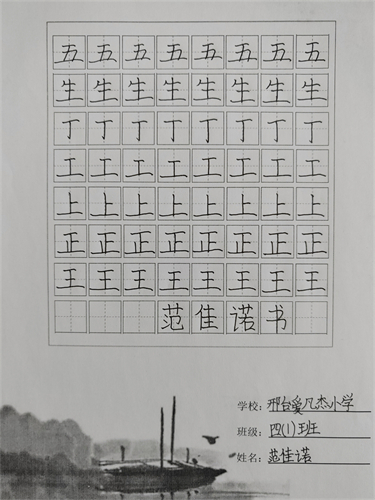 五五五五五五五五
生生生生生生生生
丁丁丁丁丁丁丁丁
工工工工工工工工
上上上上上上上上
正正正正正正正正
王王王王王王王王
范佳诺书
学校：邢台爱凡杰小学
班级：四(1)班
姓名：范佳诺